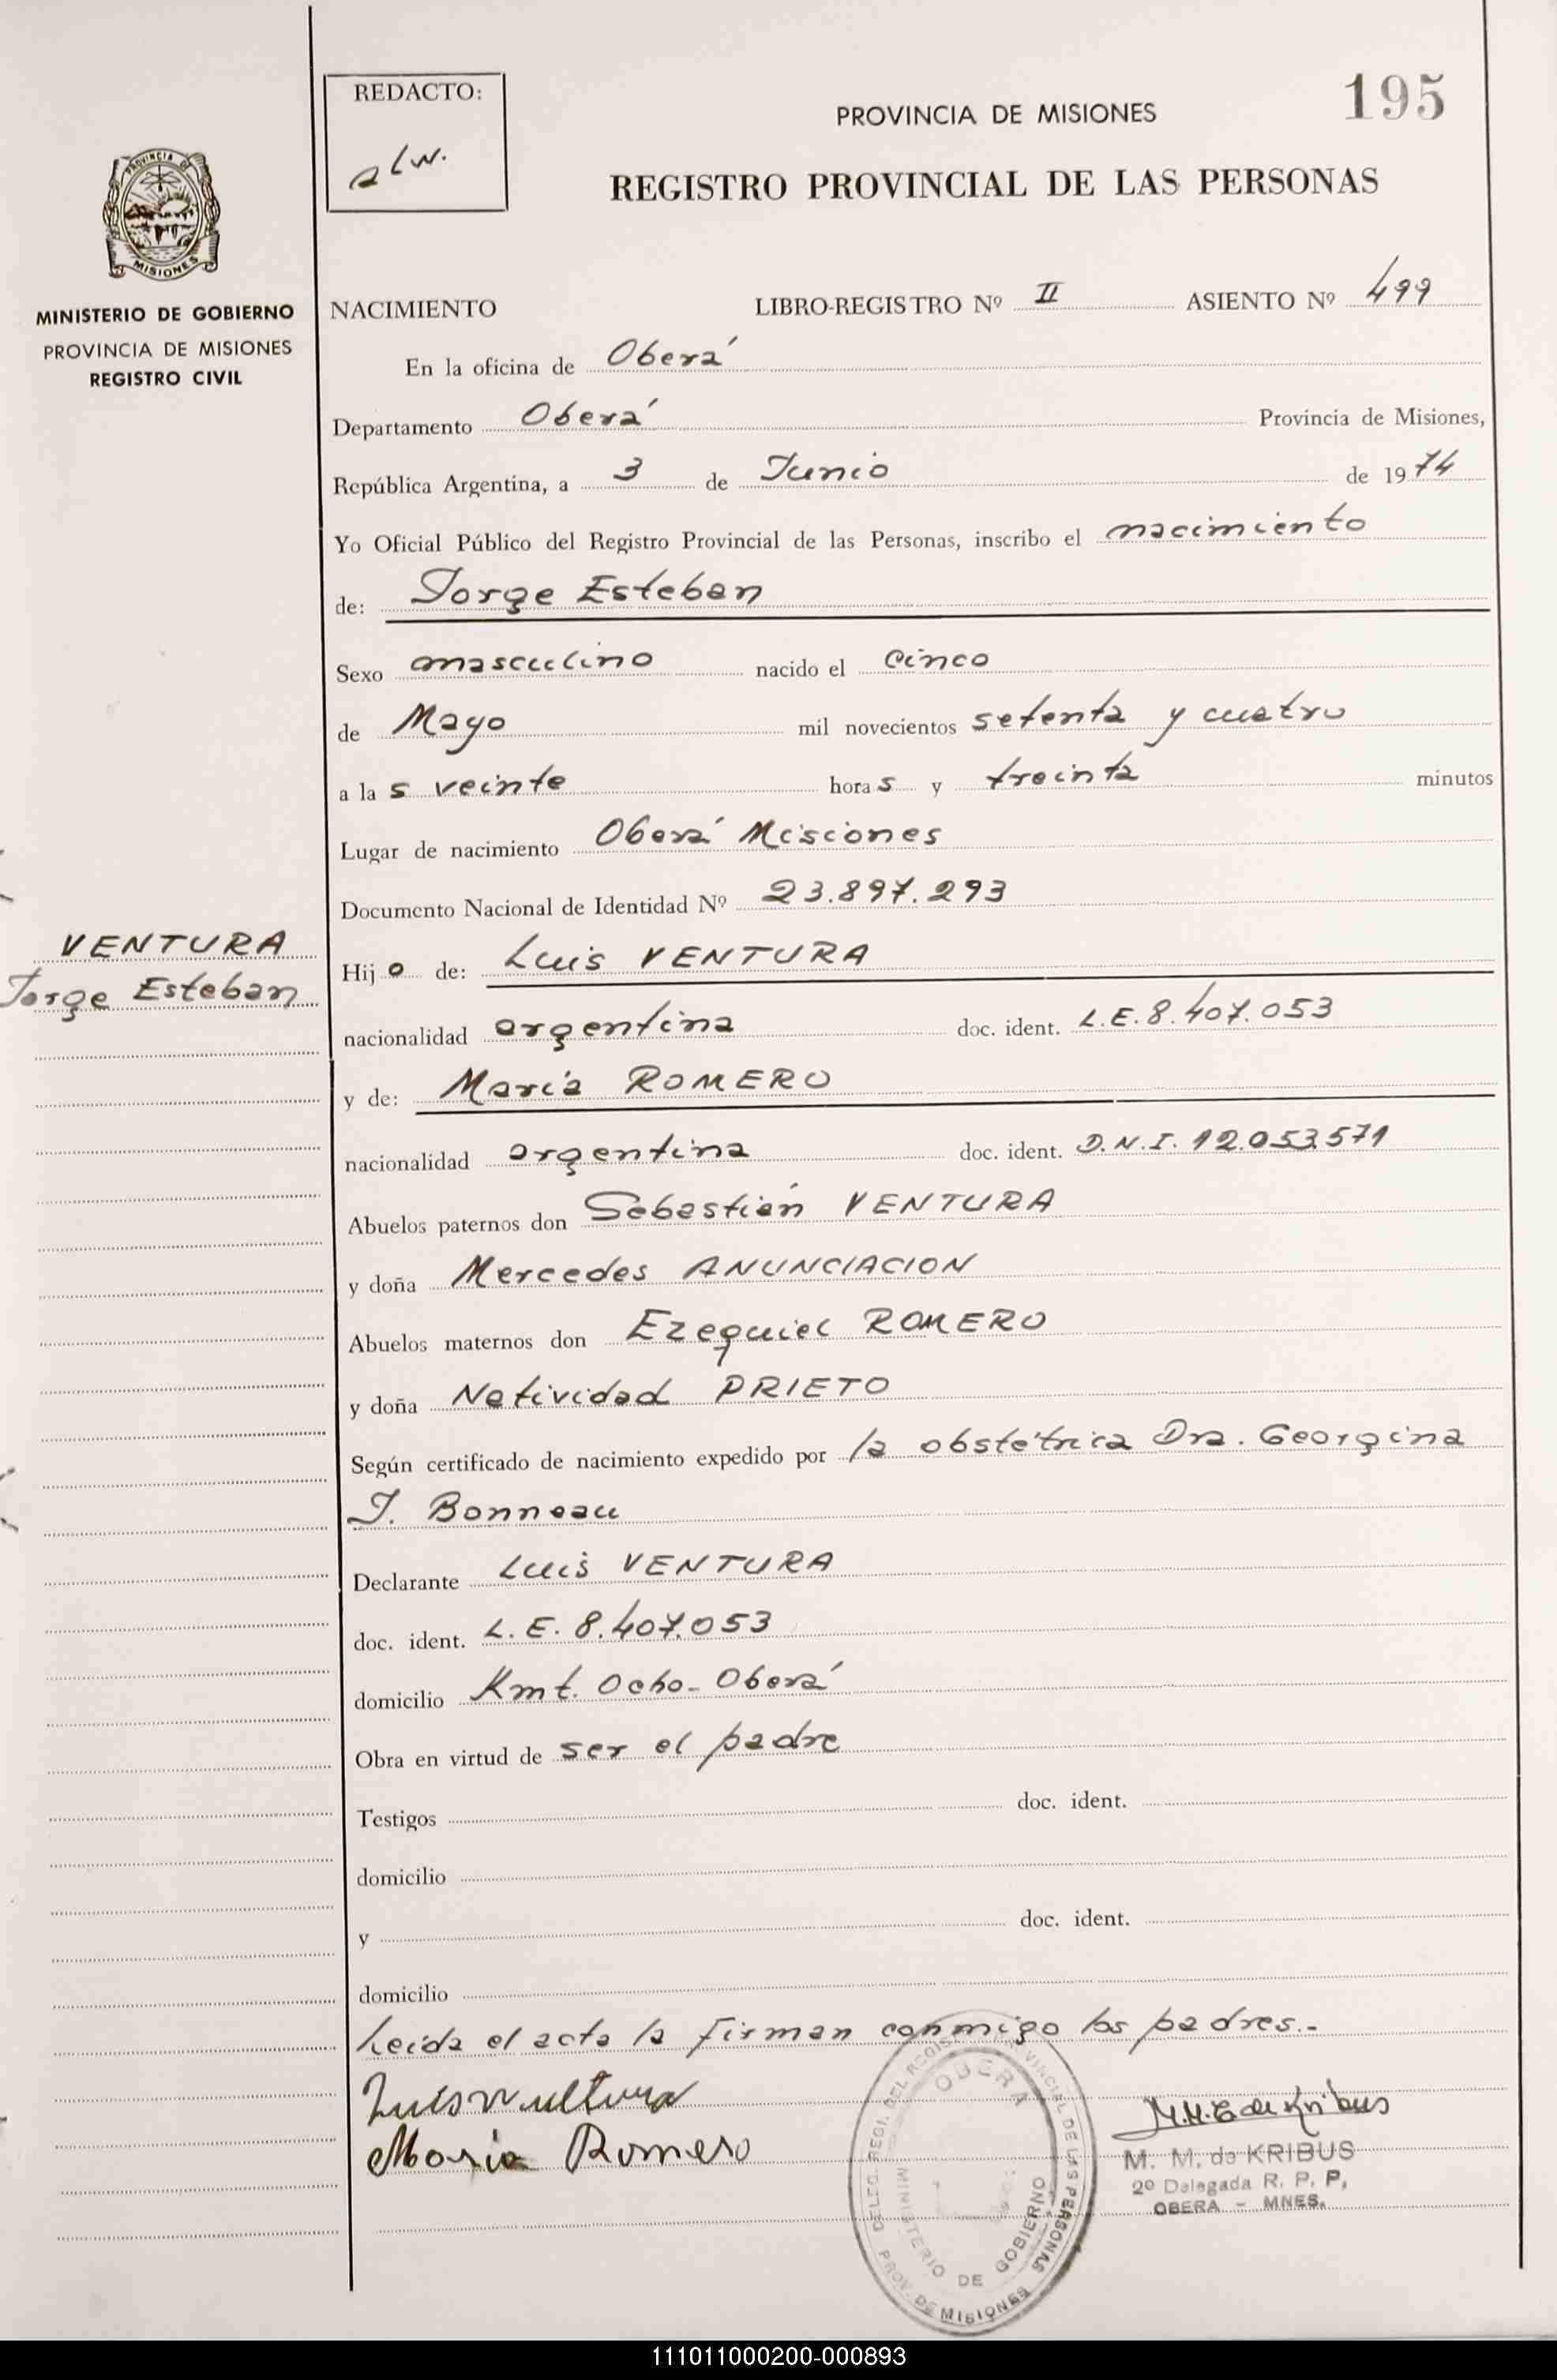 195
REDACTO:
alw.
PROVINCIA DE MISIONES
REGISTRO PROVINCIAL DE LAS PERSONAS
PROVINCIA DE
MISIONES
MINISTERIO DE GOBIERNO
PROVINCIA DE MISIONES
REGISTRO CIVIL
NACIMIENTO LIBRO-REGISTRO Nº II ASIENTO Nº 499
En la oficina de Oberá
Departamento Oberá Provincia de Misiones,
República Argentina, a 3 de Junio de 1974
Yo Oficial Público del Registro Provincial de las Personas, inscribo el nacimiento
de: Jorge Esteban
Sexo masculino nacido el cinco
de Mayo mil novecientos setenta y cuatro
a las veinte horas y treinta minutos
Lugar de nacimiento Oberá Misiones
Documento Nacional de Identidad Nº 23.897.293
VENTURA
Jorge Esteban
Hijo de: Luis VENTURA
nacionalidad argentina doc. ident. L.E. 8.407.053
y de: María ROMERO
nacionalidad argentina doc. ident. D.N.I. 12.053.571
Abuelos paternos don Sebastián VENTURA
y doña Mercedes ANUNCIACION
Abuelos maternos don Ezequiel ROMERO
y doña Natividad PRIETO
Según certificado de nacimiento expedido por la obstétrica Dra. Georgina
J. Bonneau
Declarante Luis VENTURA
doc. ident. L.E. 8.407.053
domicilio Kmt. Ocho - Oberá
Obra en virtud de ser el padre
Testigos doc. ident.
domicilio
y doc. ident.
domicilio
Leída el acta la firman conmigo los padres.-
Luis Ventura
María Romero
M.M.E de Kribus
M. M. de KRIBUS
2º Delegada R. P. P,
OBERA - MNES.
OBERA
MINISTERIO DE GOBIERNO
PROV. DE MISIONES
111011000200-000893